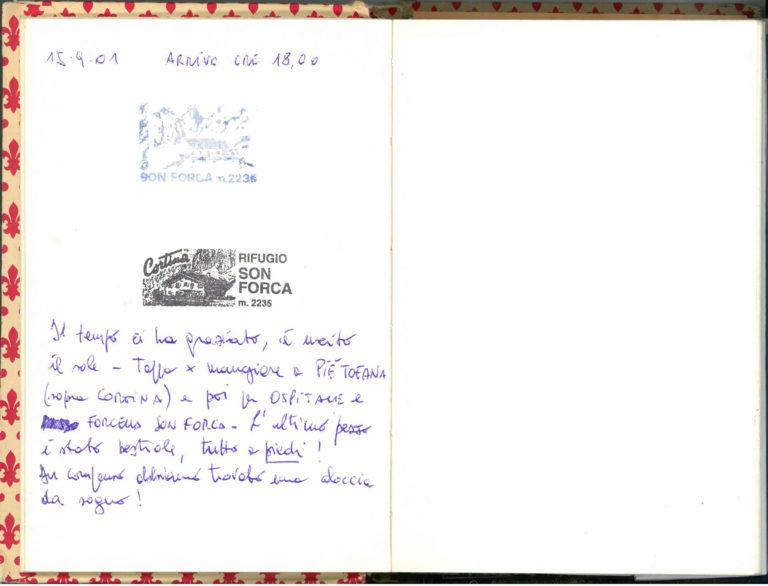 15.9.01 ARRIVO ORE 18,00
SON FORCA n.2235
Cortina
RIFUGIO
SON
FORCA
m. 2235
Il tempo ci ha graziato, è uscito
il sole - Tappa x mangiare a PIÈ TOFANA
(sopra CORTINA) e poi per OSPITALE e
FORCELLA SON FORCA - L'ultimo pezzo
è stato bestiale, tutto a piedi!
In compenso abbiamo trovato una doccia
da sogno!